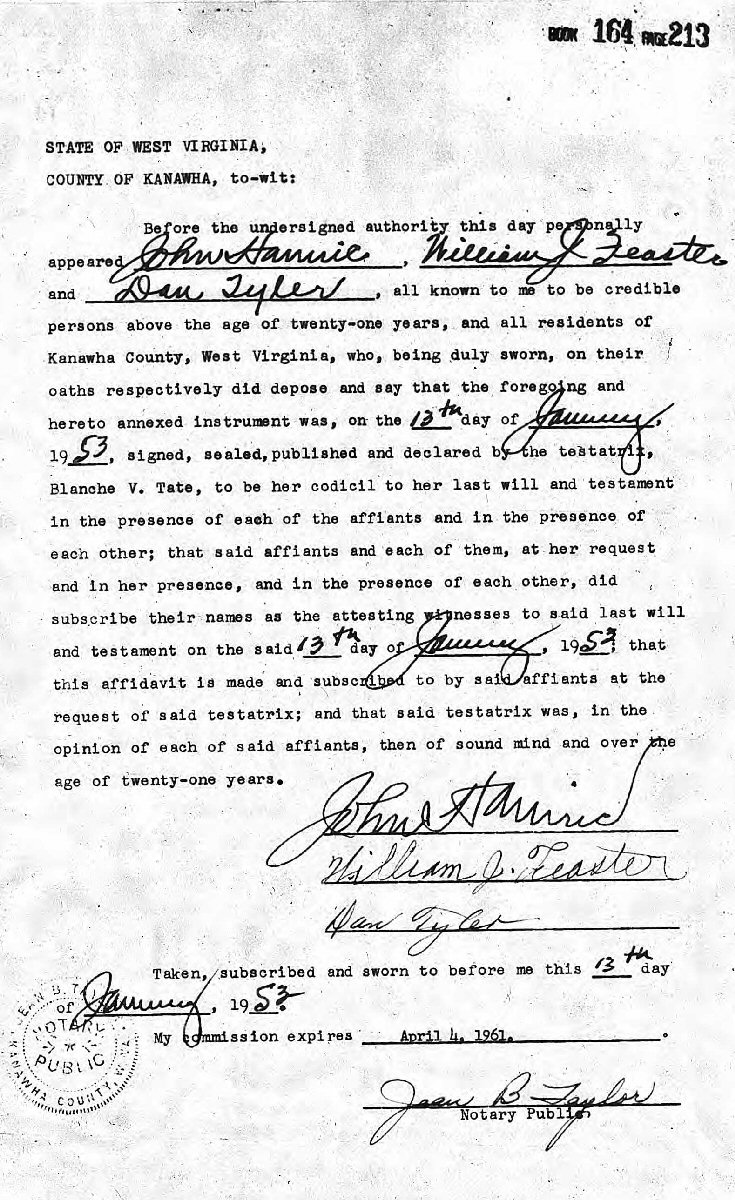 BOOK 164 PAGE 213
STATE OF WEST VIRGINIA,
COUNTY OF KANAWHA, to-wit:
Before the undersigned authority this day personally
appeared John , William J. Feaster
and Dan Tyler, all known to me to be credible
persons above the age of twenty-one years, and all residents of
Kanawha County, West Virginia, who, being duly sworn, on their
oaths respectively did depose and say that the foregoing and
hereto annexed instrument was, on the 13th day of January,
1953, signed, sealed, published and declared by the testatrix,
Blanche V. Tate, to be her codicil to her last will and testament
in the presence of each of the affiants and in the presence of
each other; that said affiants and each of them, at her request
and in her presence, and in the presence of each other, did
subscribe their names as the attesting witnesses to said last will
and testament on the said 13th day of January, 1953; that
this affidavit is made and subscribed to by said affiants at the
request of said testatrix; and that said testatrix was, in the
opinion of each of said affiants, then of sound mind and over the
age of twenty-one years.
John
William J. Feaster
Dan Tyler
Taken, subscribed and sworn to before me this 13th day
of January, 1953.
My commission expires April 4, 1961.
Jean B Taylor
Notary Public
NOTARY
PUBLIC
KANAWHA COUNTY, W. VA.